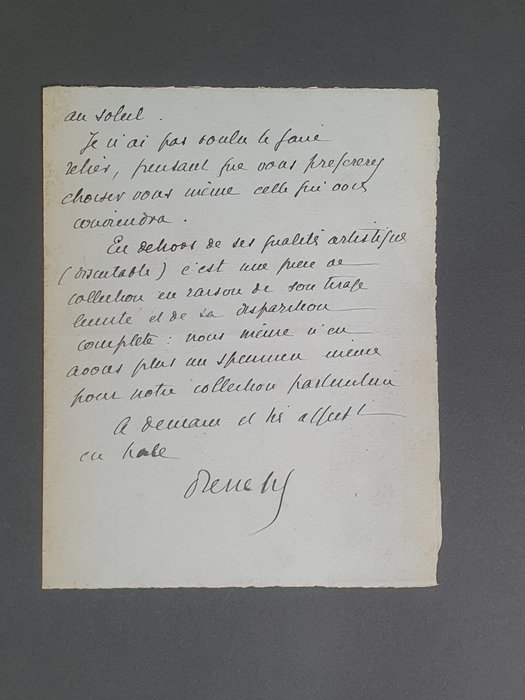 au soleil.
Je n'ai pas voulu le faire
relier, pensant que vous préférerez
choisir vous même celle qui vous
conviendra.
En dehors de ses qualités artistiques
(discutable) c'est une pièce de
collection en raison de son tirage
limité et de sa disparition
complète : nous même n'en
avons plus un spécimen même
pour notre collection particulière
A demain et très affect
en hate